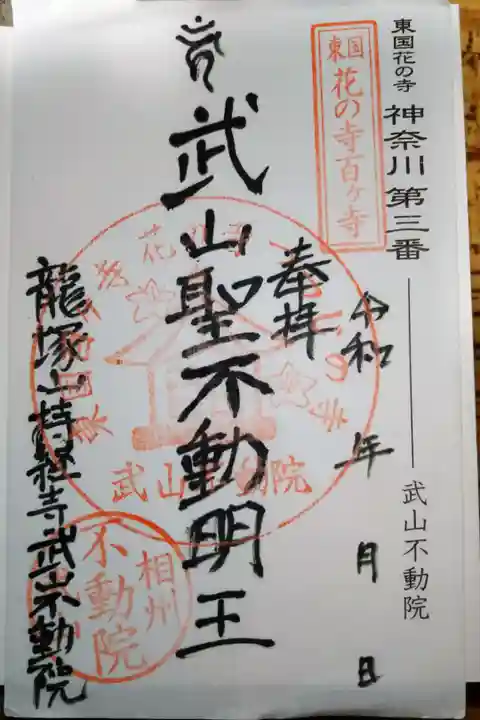 東国花の寺 神奈川第三番 武山不動院
東国
花の寺百ヶ寺
奉拝 令和 年 月 日
武山聖不動明王
武山不動院
相州
不動院
龍塚山持経寺武山不動院